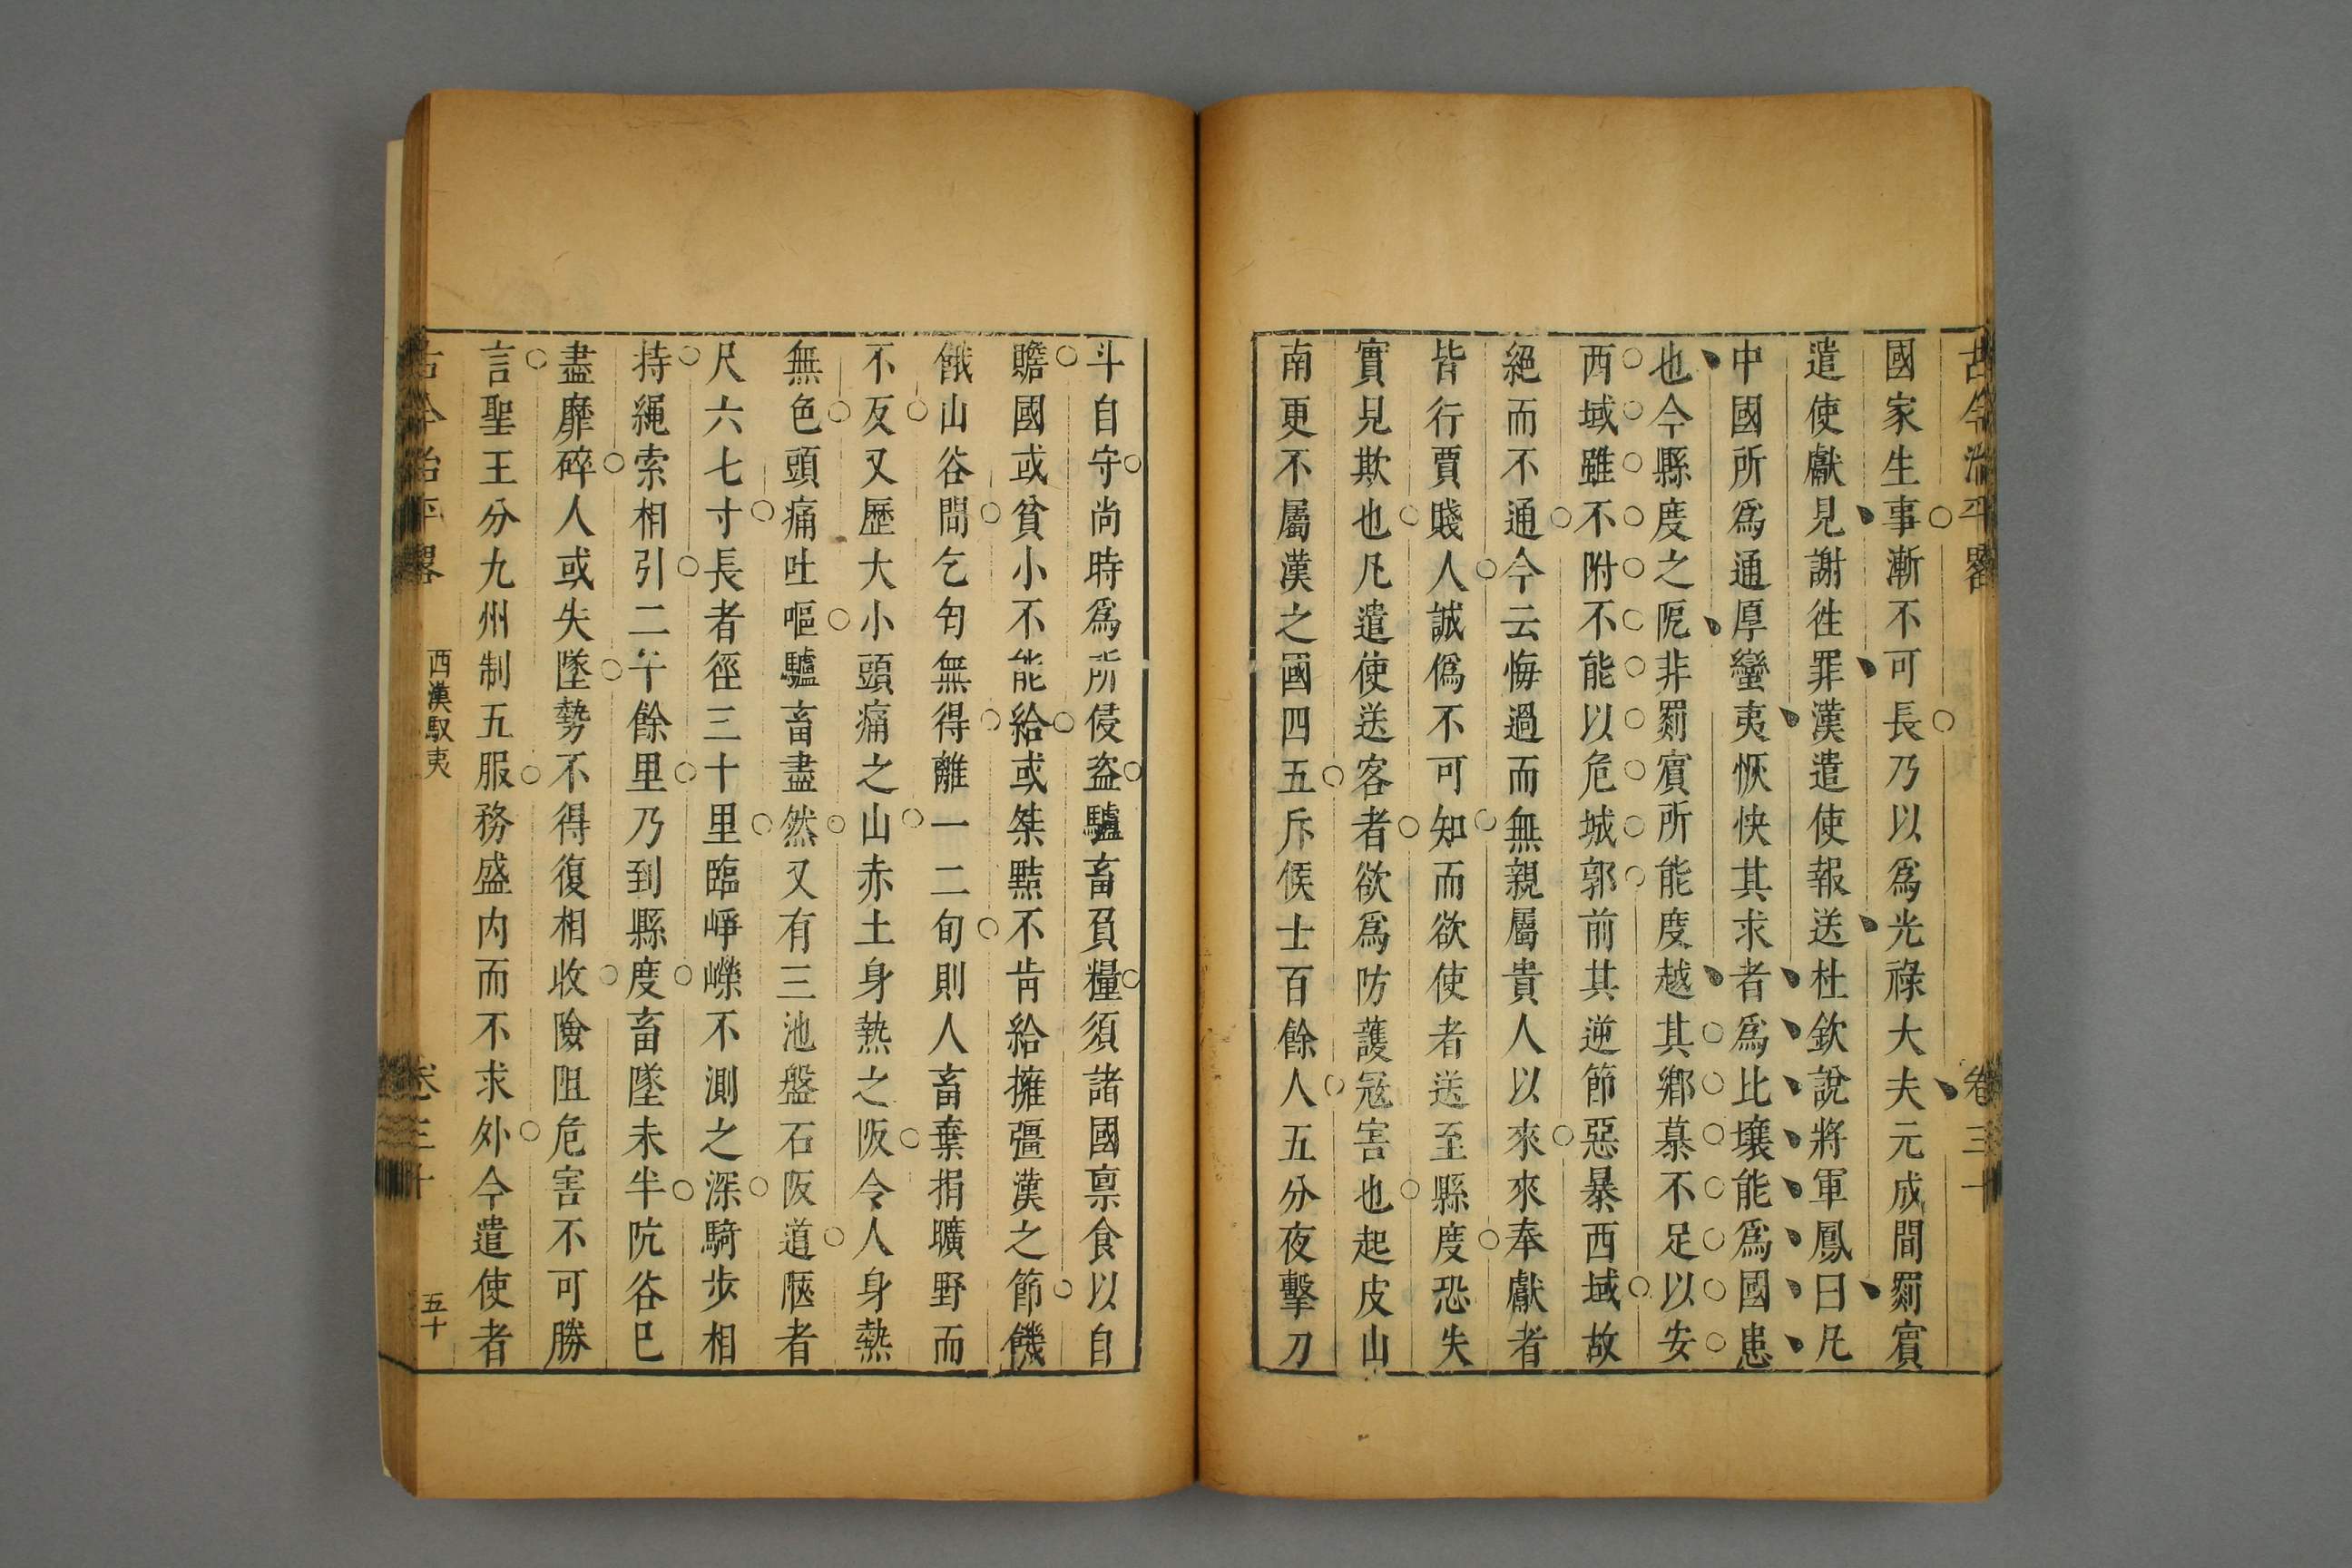 古今治平畧 卷三十
國家生事漸不可長乃以爲光祿大夫元成間罽賓
遣使獻見謝徃罪漢遣使報送杜欽說將軍鳳曰凡
中國所爲通厚蠻夷愜快其求者爲比壤能爲國患
也今縣度之阨非罽賓所能度越其鄉慕不足以安
西域雖不附不能以危城郭前其逆節惡暴西域故
絕而不通今云悔過而無親屬貴人以來來奉獻者
皆行賈賤人誠僞不可知而欲使者送至縣度恐失
實見欺也凡遣使送客者欲爲防護寇害也起皮山
南更不屬漢之國四五斥候士百餘人五分夜擊刀
斗自守尚時爲所侵盗驢畜負糧須諸國禀食以自
贍國或貧小不能給或桀黠不肯給擁彊漢之節餓
餓山谷間乞匄無得離一二旬則人畜棄捐曠野而
不反又歷大小頭痛之山赤土身熱之阪令人身熱
無色頭痛吐嘔驢畜盡然又有三池盤石阪道陿者
尺六七寸長者徑三十里臨崢嶸不測之深騎步相
持繩索相引二千餘里乃到縣度畜墜未半阬谷巳
盡靡碎人或失墜勢不得復相收險阻危害不可勝
言聖王分九州制五服務盛内而不求外今遣使者
古今治平畧 西漢馭夷 卷三十 五十